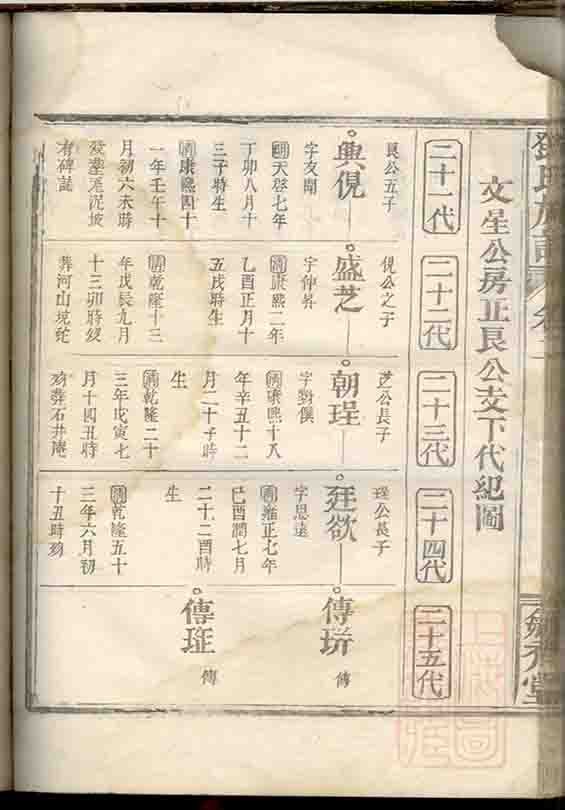 鄧氏族譜
卷二
文星公房正艮公支下代紀圖
二十一代
艮公五子
興俔
字友聞
明天啓七年
丁卯八月十
三子時生
清康熙四十
一年壬午十
月初六未時
歿葬尾泥坡
有碑誌
二十二代
俔公之子
盛芝
字仲昇
清康熙二年
乙酉正月十
五戌時生
清乾隆十三
年戊辰九月
十三卯時歿
葬河山境蛇
二十三代
芝公長子
朝珵
字對僎
清康熙十八
年辛丑十二
月二十子時
生
清乾隆二十
三年戊寅七
月十四丑時
歿葬石井庵
二十四代
珵公長子
廷欲
字思遠
清雍正七年
己酉潤七月
二十二酉時
生
清乾隆五十
三年六月初
十丑時歿
二十五代
傳琾
傳
傳琟
傳